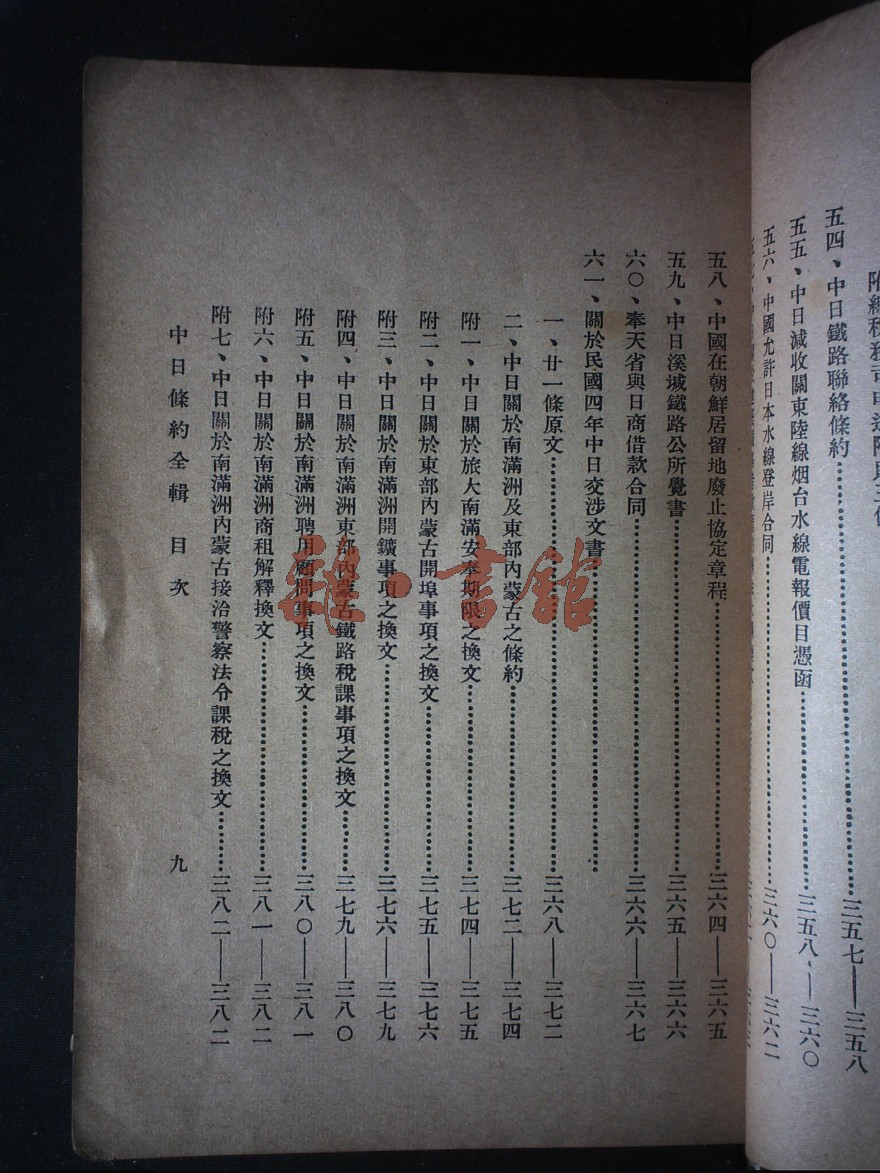 五四、中日鐵路聯絡條約……三五七——三五八
五五、中日減收關東陸線烟台水線電報價目憑函……三五八——三六〇
五六、中國允許日本水線登岸合同……三六〇——三六二
五八、中國在朝鮮居留地廢止協定章程……三六四——三六五
五九、中日溪堿鐵路公所覺書……三六五——三六六
六〇、奉天省與日商借款合同……三六六——三六七
六一、關於民國四年中日交涉文書……
一、廿一條原文……三六八——三七二
二、中日關於南滿洲及東部內蒙古之條約……三七二——三七四
附一、中日關於旅大南滿安奉期限之換文……三七四——三七五
附二、中日關於東部內蒙古開埠事項之換文……三七五——三七六
附三、中日關於南滿洲開鑛事項之換文……三七六——三七九
附四、中日關於南滿洲東部內蒙古鐵路稅課事項之換文……三七九——三八〇
附五、中日關於南滿洲聘用顧問事項之換文……三八〇——三八一
附六、中日關於南滿洲商租解釋換文……三八一——三八二
附七、中日關於南滿洲內蒙古接洽警察法令課稅之換文……三八二——三八二
中日條約全輯 目次 九
雜·書館